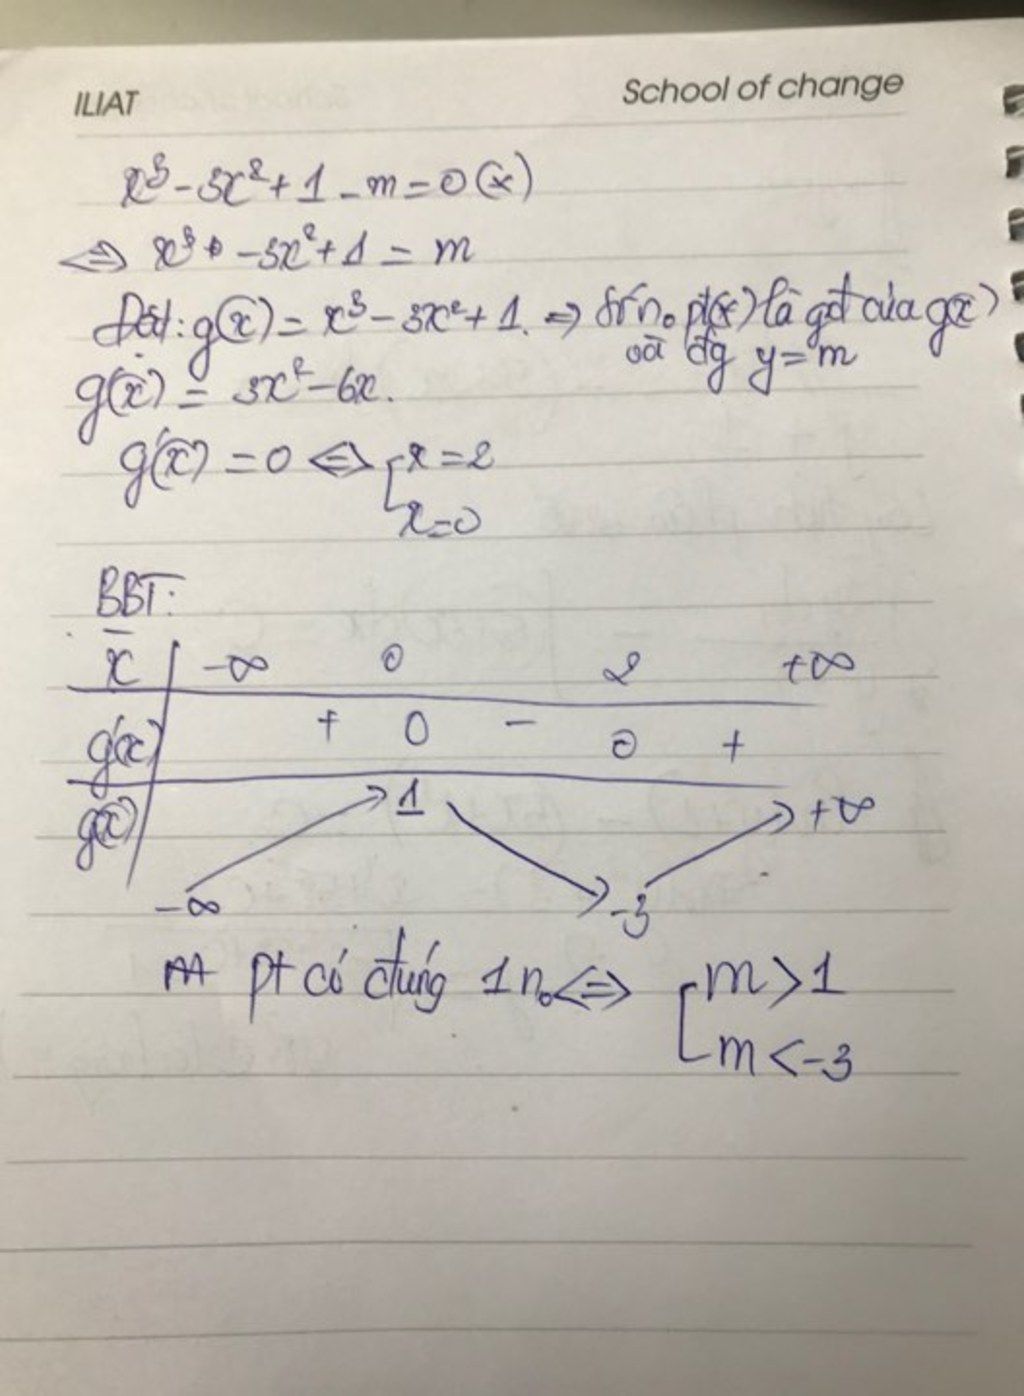 ILIAT School of change
x³ - 3x² + 1 - m = 0 (*)
⇔ x³ - 3x² + 1 = m
Đặt: g(x) = x³ - 3x² + 1. ⇒ Số n₀ pt(*) là gđ của g(x)
và đg y = m
g'(x) = 3x² - 6x.
g'(x) = 0 ⇔ [ x = 2
x = 0
BBT:
x | -∞ 0 2 +∞
g'(x) + 0 - 0 +
g(x) 1 +∞
-∞ -3
pt có đúng 1 n₀ ⇔ [ m > 1
m < -3